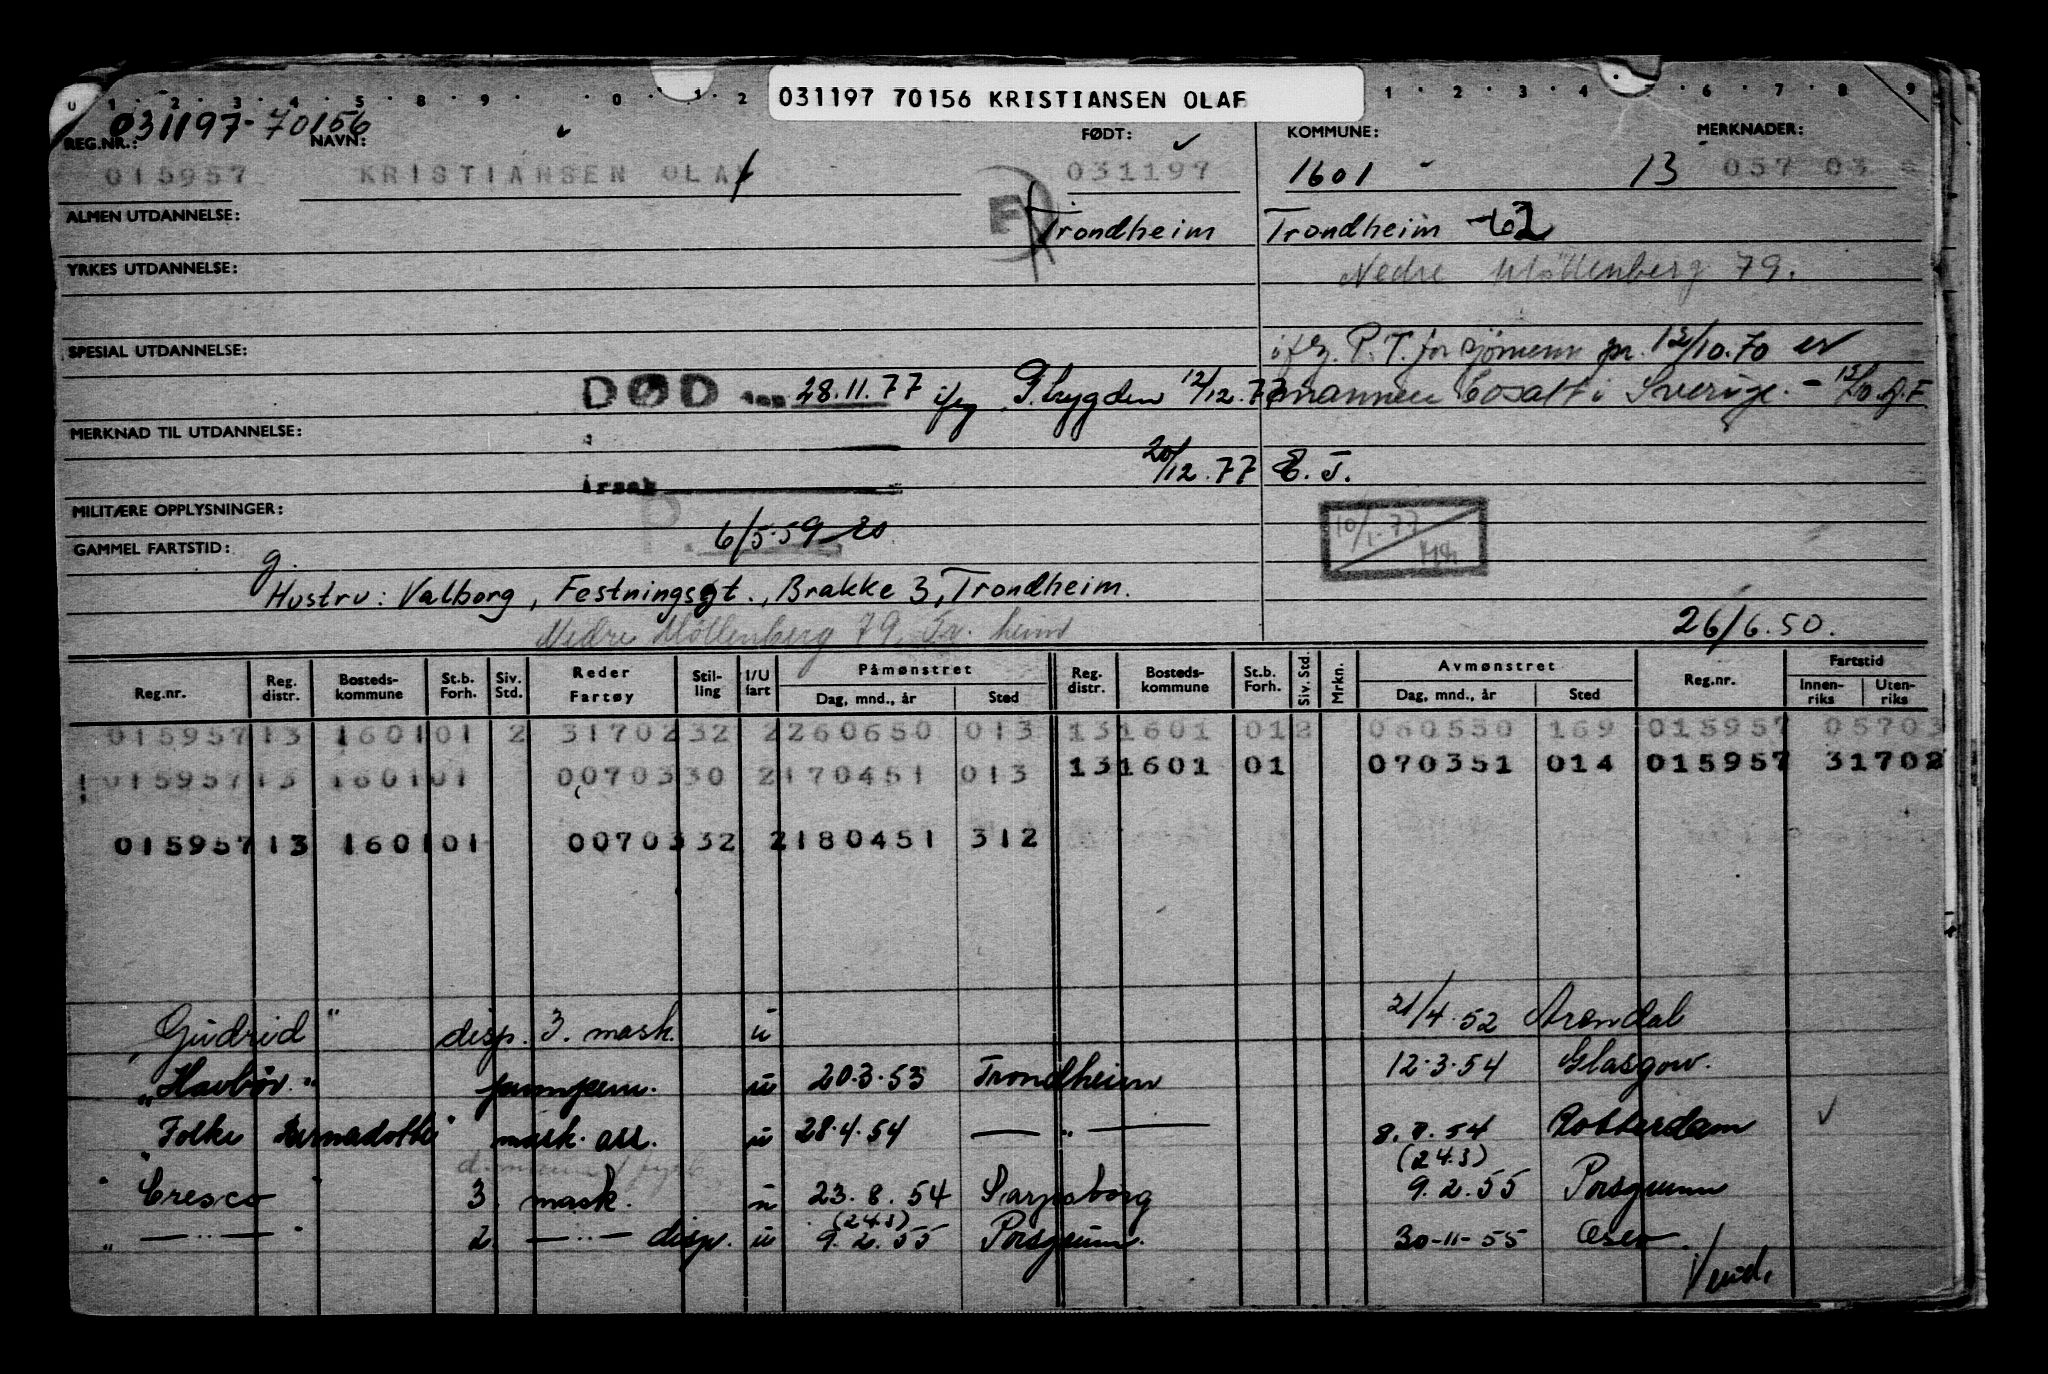 0 1 2 3 4 5 8 9 0 1 2 1 2 3 4 6 7 8 9
031197 70156 KRISTIANSEN OLAF
031197-70156
REG.NR.: NAVN: FØDT: KOMMUNE: MERKNADER:
015957 KRISTIANSEN OLAf 031197 1601 13 057 03
ALMEN UTDANNELSE: Trondheim Trondheim
YRKES UTDANNELSE: Nedre Møllenberg 79.
SPESIAL UTDANNELSE: ifg. P.T. for sjømenn pr. 12/10.70 er
DØD den 28.11.77 ifg P.trygden 12/12.77 mannen bosatt i Sverige. -
MERKNAD TIL UTDANNELSE:
20/12.77 E.T.
årsak
MILITÆRE OPPLYSNINGER: 10/1.77
P. 6/5.59
GAMMEL FARTSTID:
g.
Hustru: Valborg, Festningsgt., Brakke 3, Trondheim.
Nedre Møllenberg 79 Tr. heim 26/6.50.
Reg.nr. Reg. distr. Bosteds-kommune St.b. Forh. Siv. Std. Reder Fartøy Stil-ling I/U fart Påmønstret Dag, mnd., år Sted Reg. distr. Bosteds-kommune St.b. Forh. Siv. Std. Mrkn. Avmønstret Dag, mnd., år Sted Reg.nr. Fartstid Innen-riks Uten-riks
015957 13 1601 01 2 31702 32 2 260650 013 13 1601 01 2 060550 169 015957 05703
015957 13 1601 01 00703 30 2 170451 013 13 1601 01 070351 014 015957 31702
015957 13 1601 01 00703 32 2 180451 312
"Gudrid" disp. 3. mask. u 21/4.52 Arendal
"Havbör." pumpem. u 20.3.53 Trondheim 12.3.54 Glasgow.
"Folke Bernadotte" mask. ass. u 28.4.54 — " — 8.7.54 Rotterdam
"Cresco 3. mask. u 23.8.54 Sarpsborg (24.3) 9.2.55 Porsgrunn
" — " — " 2. — " — disp. u (24.3) 9.2.55 Porsgrunn. 30-11-55 Oslo.
Vend.